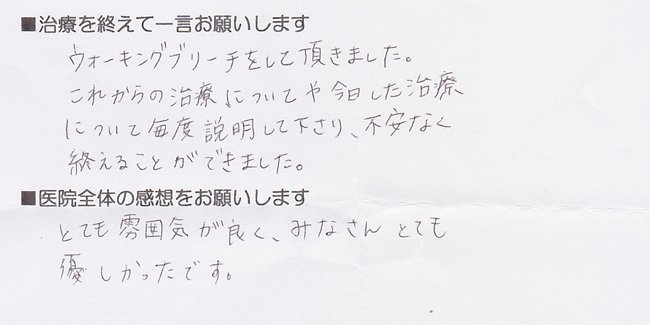 ■治療を終えて一言お願いします
ウォーキングブリーチをして頂きました。
これからの治療についてや今日した治療
について毎度説明して下さり、不安なく
終えることができました。
■医院全体の感想をお願いします
とても雰囲気が良く、みなさんとても
優しかったです。